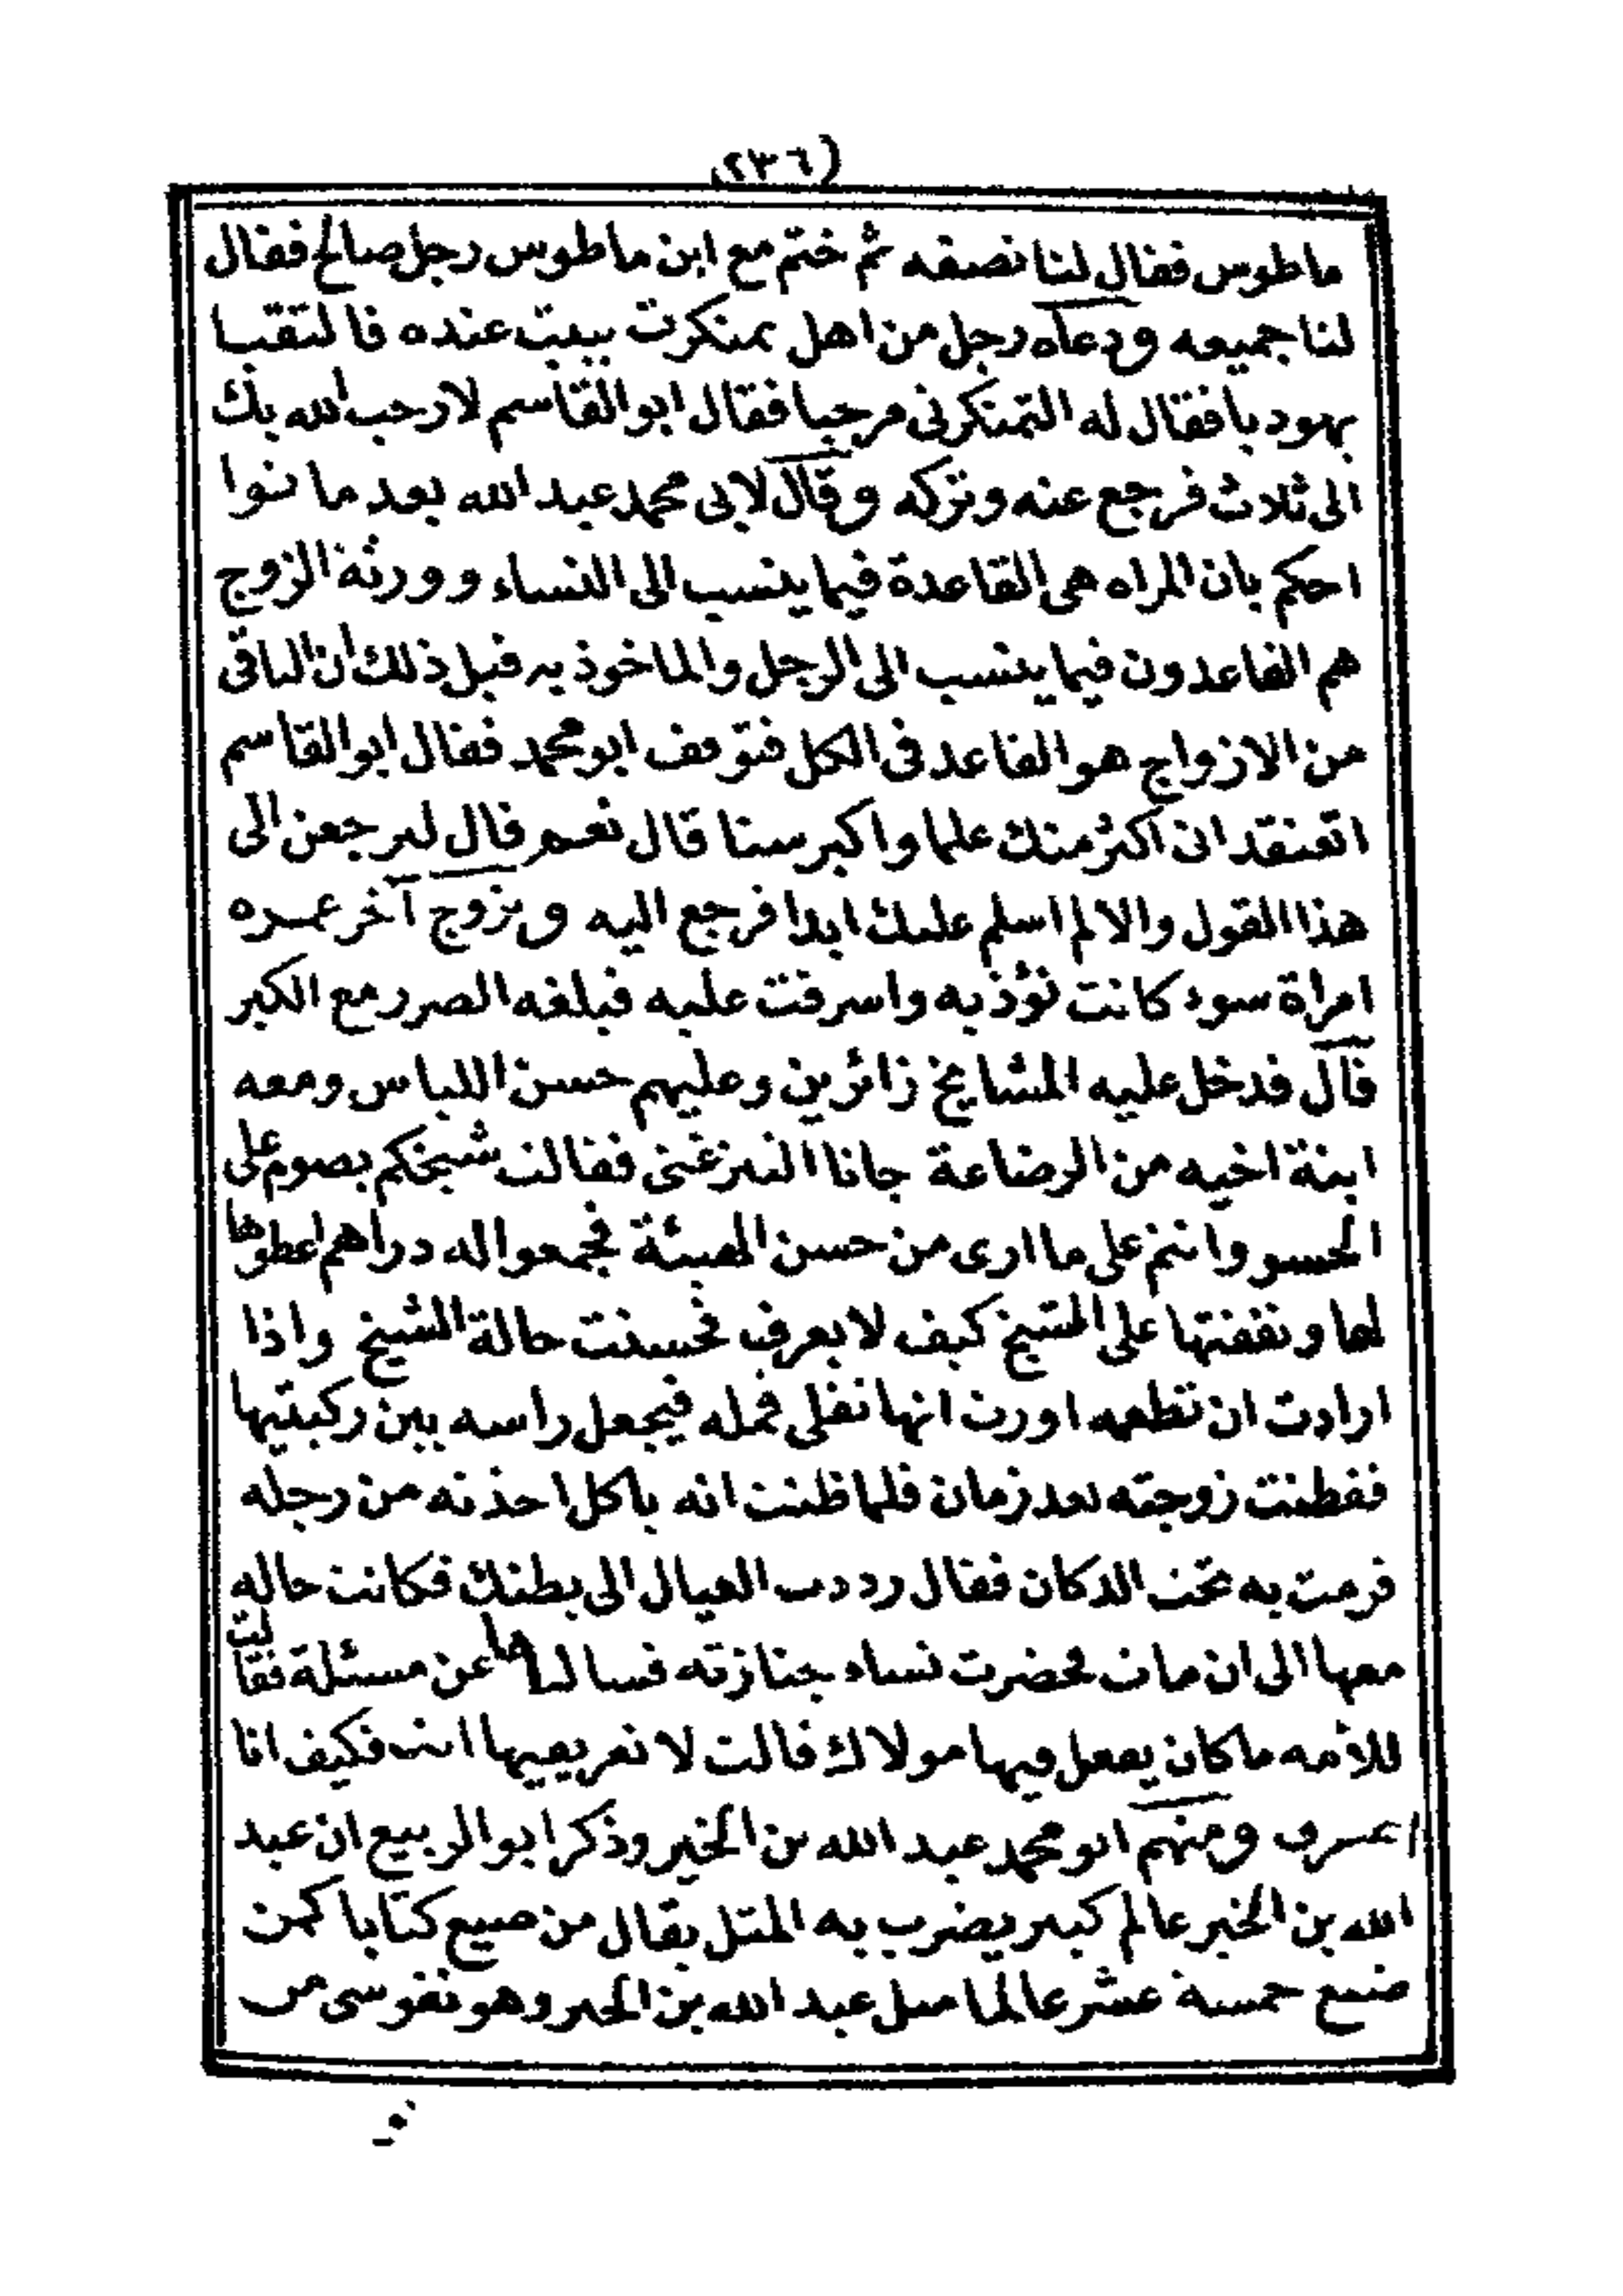 (٢٣٦)
ماطوس فقال لنا نصفه ثم ختم مع ابن ماطوس رجل صالح فقال
لنا جميعه ودعاه رجل من اهل تمنكرت يبيت عنده فالتقيا
يهوديا فقال له التمنكرتى مرحبا فقال ابو القاسم لا رحب الله بك
الى ثلاث فرجع عنه وتركه وقال لابى محمد عبد الله بعد ما
احكم بان المراه هى القاعدة فيما ينسب الى النساء وورثة الزوج
هم القاعدون فيما ينسب الى الرجل والماخوذ به قبل ذلك ان الباقى
من الازواج هو القاعد فى الكل فتوقف ابو محمد فقال ابو القاسم
اتعتقد ان اكثر منك علما واكبر سنا قال نعم قال لترجعن الى
هذا القول والا لم اسلم عليك ابدا فرجع اليه وتزوج آخر عمره
امراة سوء كانت تؤذيه واسرفت عليه فبلغه الضرر مع الكبر
قال فدخل عليه المشايخ زائرين وعليهم حسن اللباس ومعه
ابنة اخيه من الرضاعة جانا فقالت شيخكم يصوم على
الحسو وانتم على ما ارى من حسن الهيئة فجمعوا له دراهم اعطوها
لها ونفقتها على الشيخ كيف لا يعرف فحسنت حالة الشيخ واذا
ارادت ان تطعمه اورت انها تفلى قمله فيجعل راسه بين ركبتيها
ففطنت زوجته بعد زمان فلما ظنت انه ياكل اخذته من رجله
فرمت به تحت الدكان فقال رددت العيال الى بطنك فكانت حاله
معها الى ان مات فحضرت نساء جنازته فسالنها عن مسئلة فقالت
للأمه ما كان يفعل فيها مولاك قالت لا تعرفيها انت فكيف انا
اعرف ومنهم ابو محمد عبد الله بن الخير وذكر ابو الربيع ان عبد
الله بن الخير عالم كبير يضرب به المثل يقال من ضيع كتابا كمن
ضيع خمسة عشر عالما مثل عبد الله بن الخير وهو نفوسى من